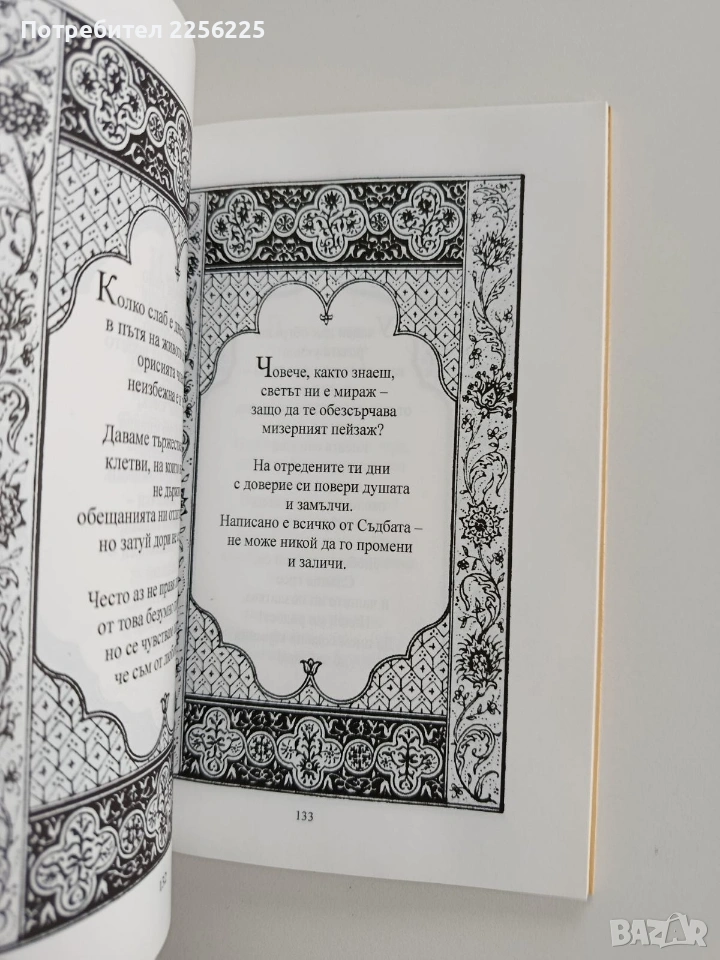 Потребител 2256225
Колко слаб е
в пътя на
орисията
неизбежна е
Даваме
клетви, на
не
обещанията ни
но затуй дори не
Често аз не
от това
но се
че съм от
132
Човече, както знаеш,
светът ни е мираж –
защо да те обезсърчава
мизерният пейзаж?
На отредените ти дни
с доверие си повери душата
и замълчи.
Написано е всичко от Съдбата –
не може никой да го промени
и заличи.
133
BAZAR